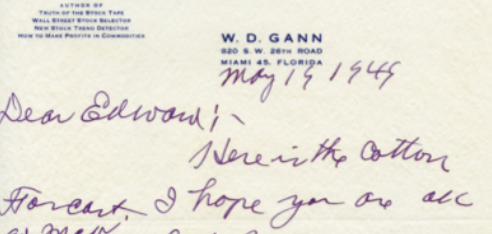 AUTHOR OF
TRUTH OF THE STOCK TAPE
WALL STREET STOCK SELECTOR
NEW STOCK TREND DETECTOR
HOW TO MAKE PROFITS IN COMMODITIES
W. D. GANN
820 S. W. 26TH ROAD
MIAMI 45, FLORIDA
May 19 1949
Dear Edward;-
Here is the Cotton
Forcast. I hope you are